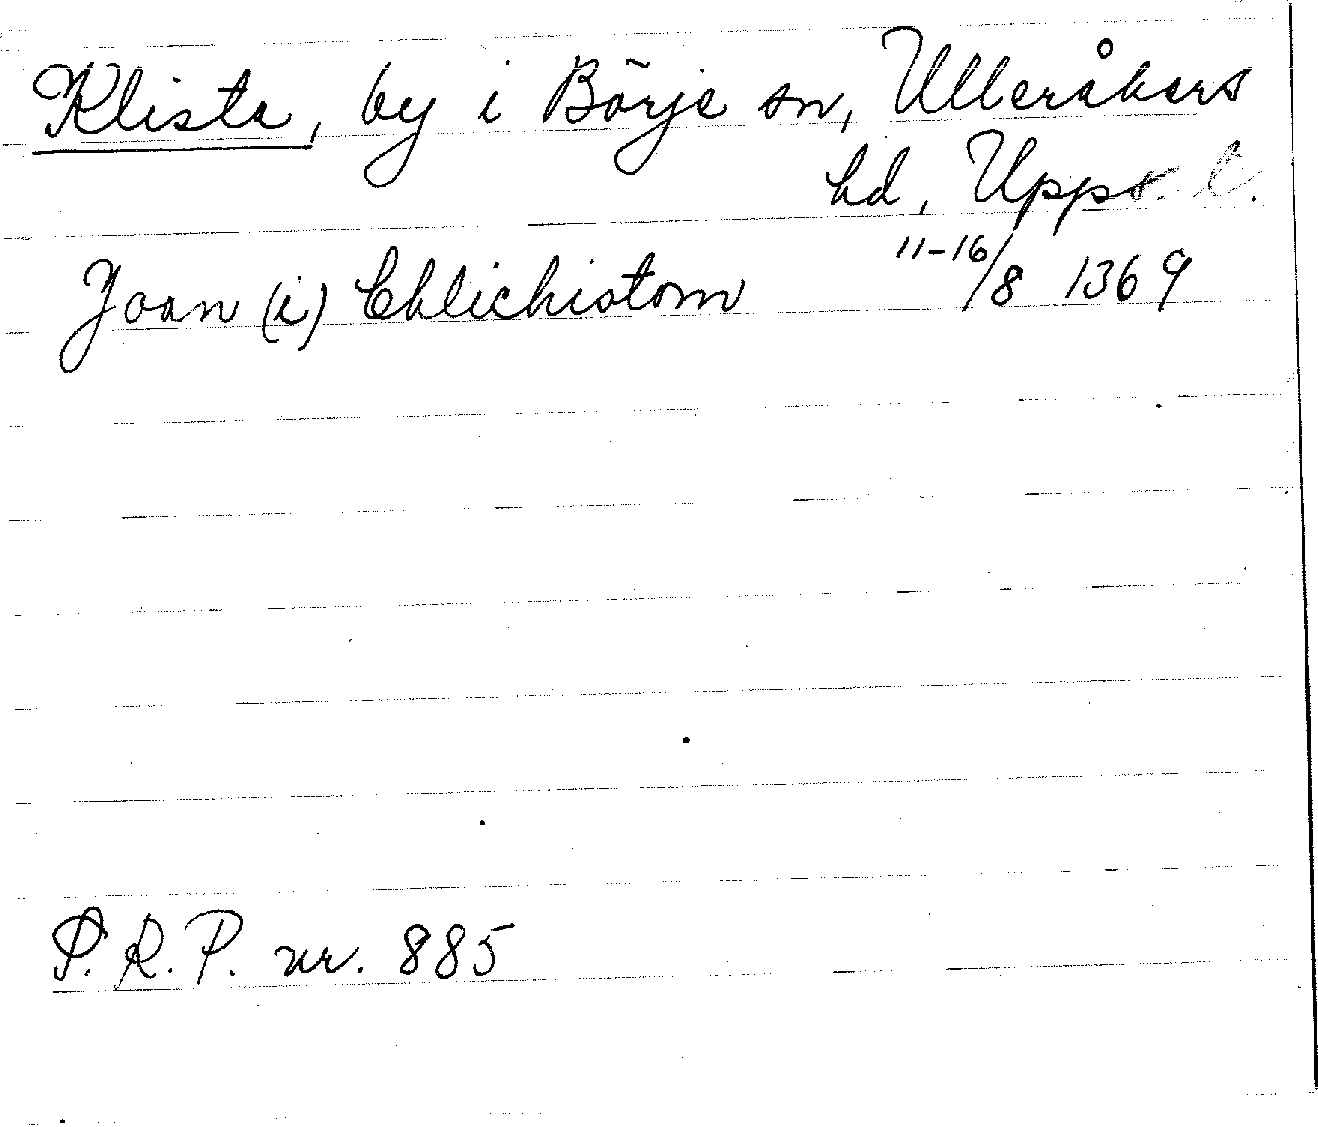 Klista, by i Börje sn, Ulleråkers
hd, Upps. l.
Joan (i) Chlichistom 11-16/8 1369
P.R.P. nr. 885